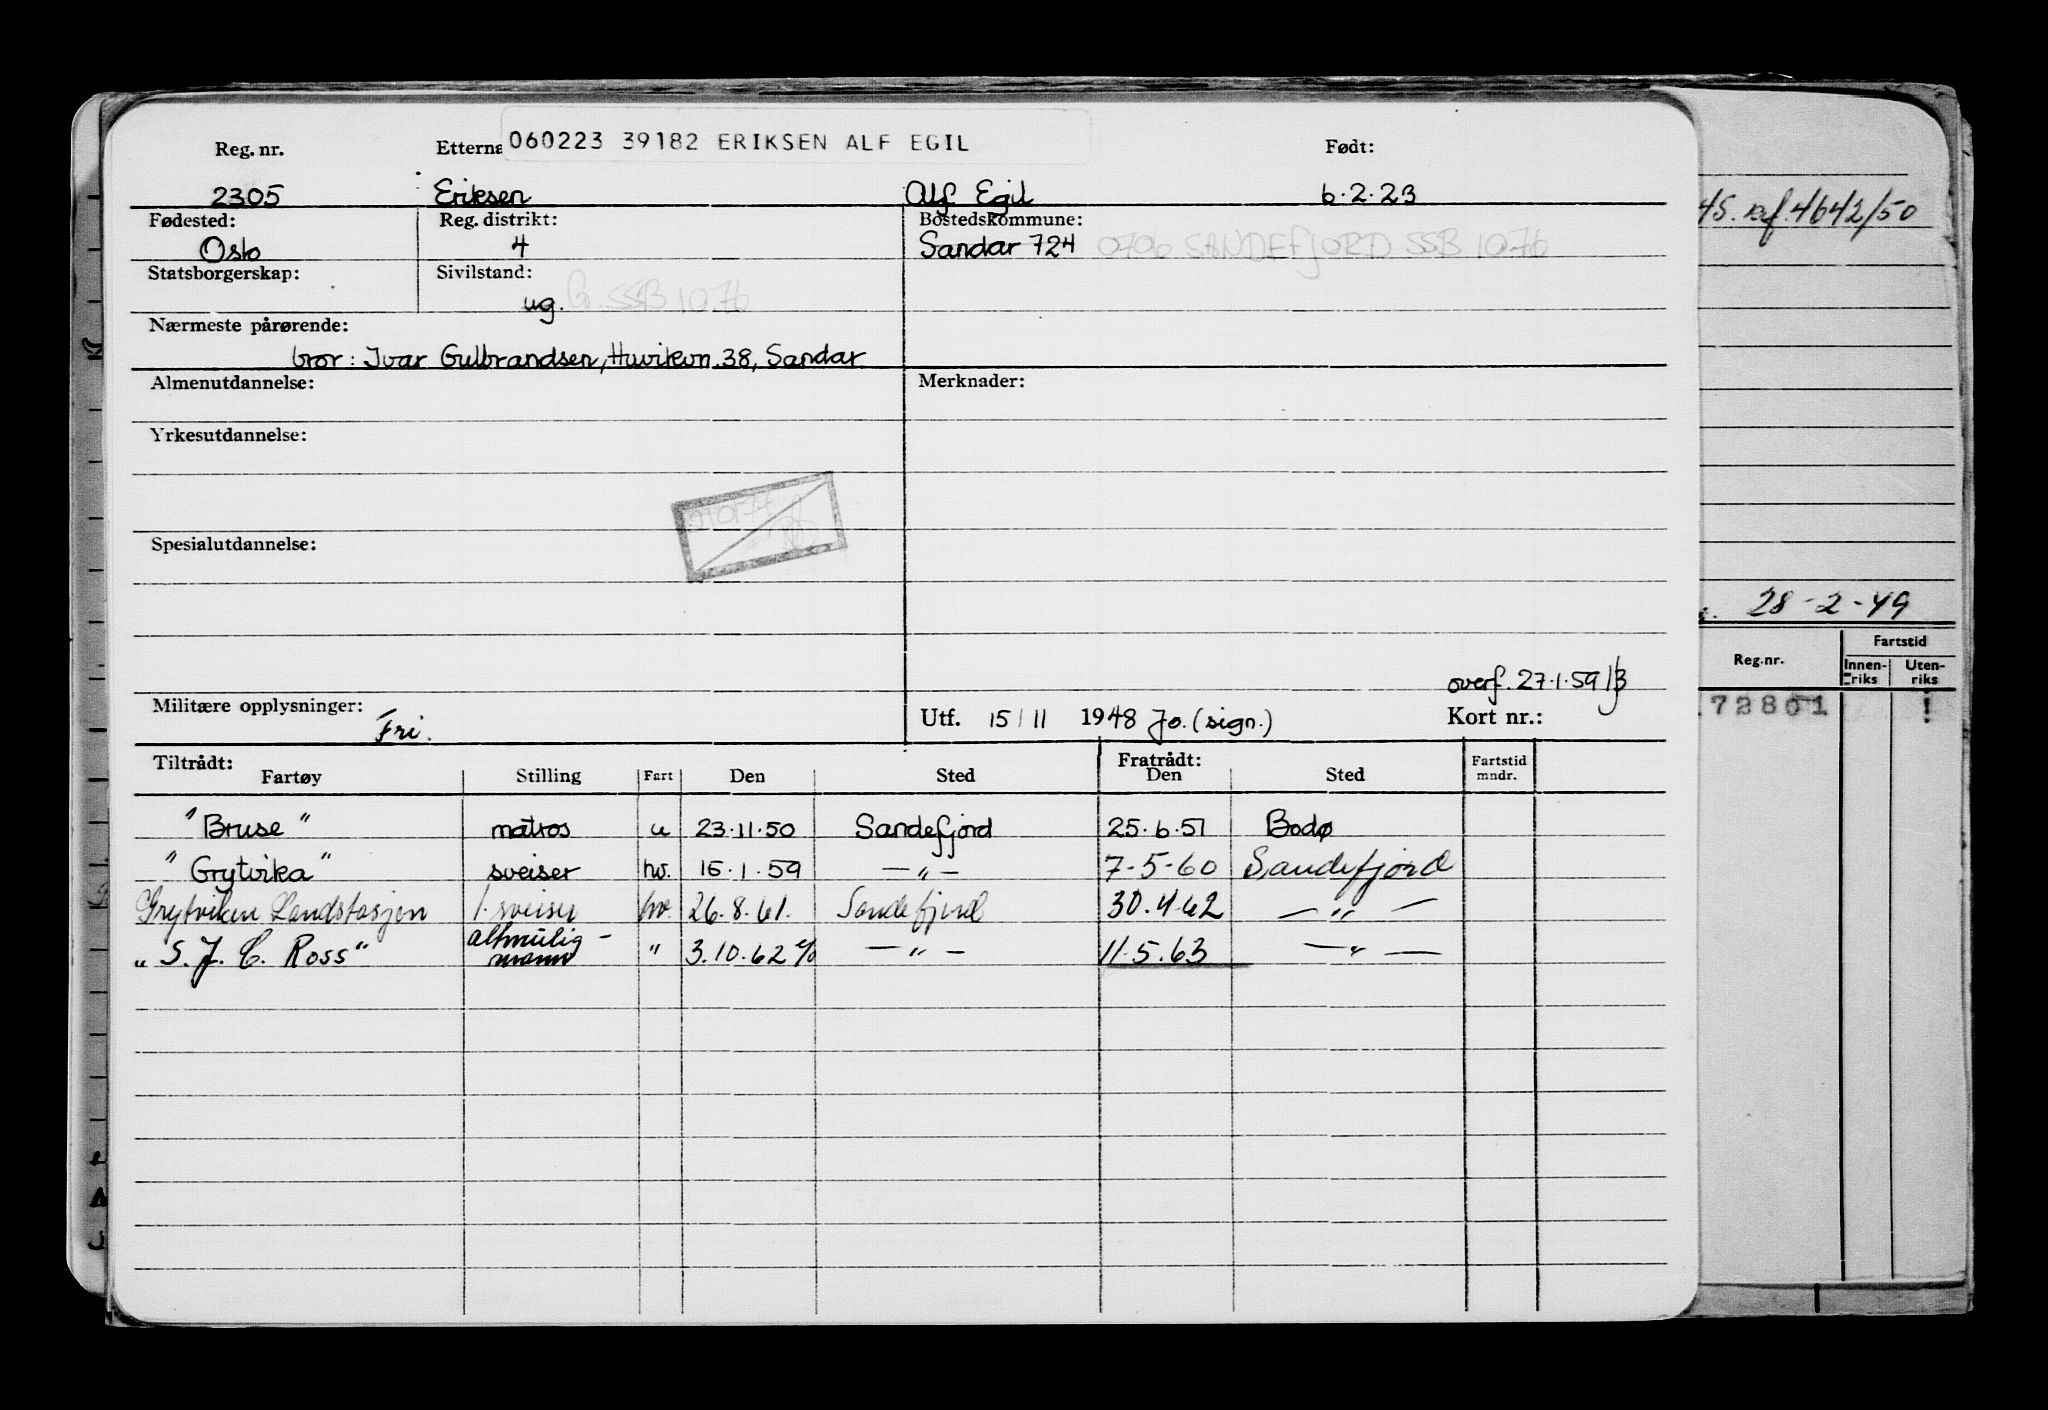 060223 39182 ERIKSEN ALF EGIL
Reg. nr. Etterna Født:
2305 Eriksen Alf Egil 6.2.23
Fødested: Reg. distrikt: Bostedskommune:
Oslo 4 Sandar 724 0706 SANDEFJORD SSB 10.76
Statsborgerskap: Sivilstand:
ug. G. SSB 10.76
Nærmeste pårørende:
bror: Ivar Gulbrandsen, Huvikvn. 38, Sandar
Almenutdannelse: Merknader:
Yrkesutdannelse:
Spesialutdannelse:
overf. 27.1.59
Militære opplysninger: Fri. Utf. 15/11 1948 Jo. (sign.) Kort nr.:
Tiltrådt: Fratrådt: Fartstid
Fartøy Stilling Fart Den Sted Den Sted mndr.
"Bruse" matros u 23.11.50 Sandefjord 25.6.51 Bodø
"Grytvika" sveiser hv. 15.1.59 —"— 7-5-60 Sandefjord
Grytviken Landstasjon 1. sveiser hv. 26.8.61. Sandefjord 30.4.62 —"—
"S. J. C. Ross" altmulig-
mann " 3.10.62 —"— 11.5.63 —"—
45. ref. 4642/50
28-2-49
Reg.nr. Fartstid
Innen-
riks Uten-
riks
72801